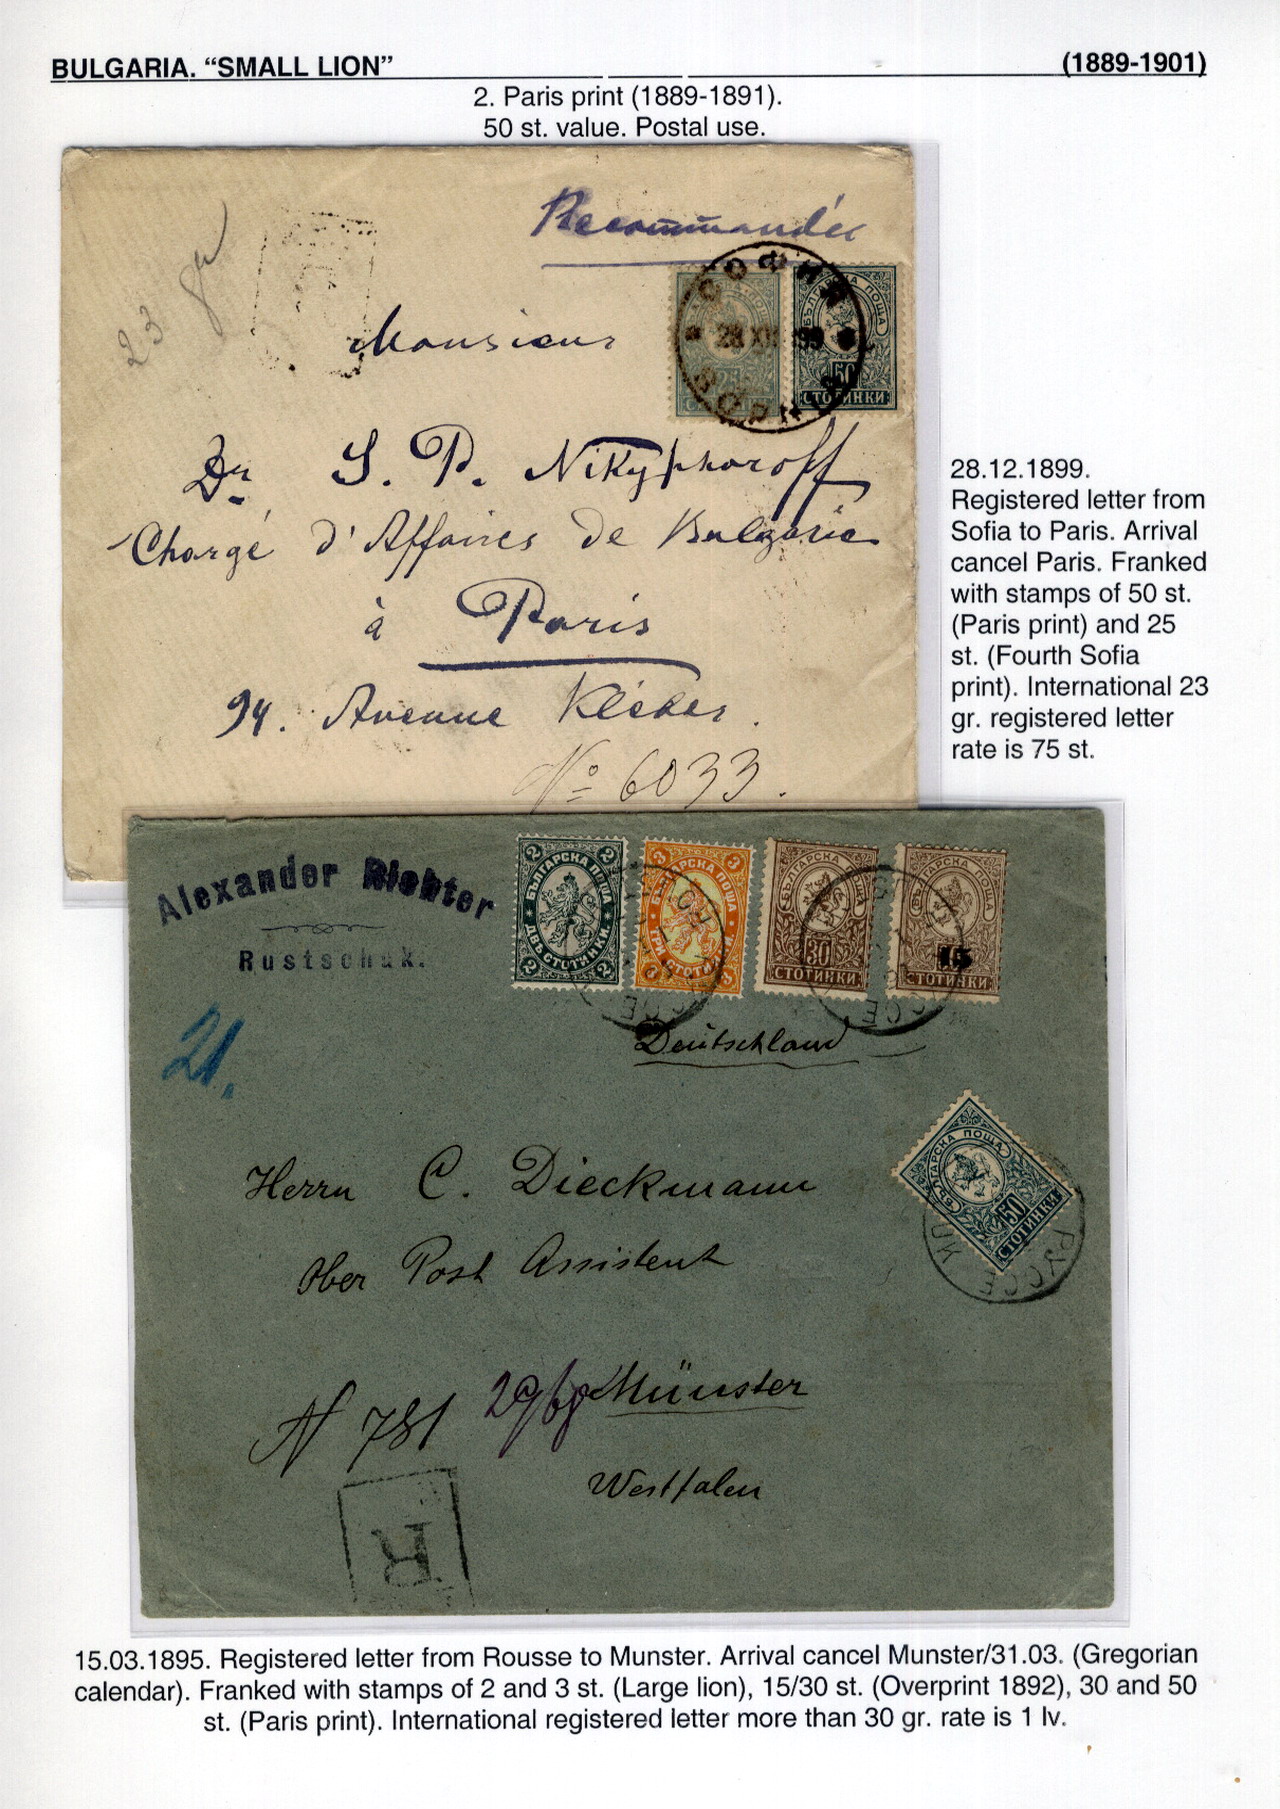 BULGARIA. “SMALL LION” (1889-1901)
2. Paris print (1889-1891).
50 st. value. Postal use.
23 gr
Recommandée
СОФИЯ
28 XII 99
БЪЛГАРСКА ПОЩА
25
50
СТОТИНКИ
Monsieur
Dr S. P. Nikyphoroff
Chargé d'Affaires de Bulgarie
à Paris
94. Avenue Kléber.
№ 6033.
28.12.1899.
Registered letter from
Sofia to Paris. Arrival
cancel Paris. Franked
with stamps of 50 st.
(Paris print) and 25
st. (Fourth Sofia
print). International 23
gr. registered letter
rate is 75 st.
Alexander Richter
Rustschuk.
2 2
БЪЛГАРСКА ПОЩА
ДВѢ СТОТИНКИ
2 2
3 3
БЪЛГАРСКА ПОЩА
ТРИ СТОТИНКИ
БЪЛГАРСКА ПОЩА
30
СТОТИНКИ
БЪЛГАРСКА ПОЩА
15
СТОТИНКИ
21.
Deutschland
БЪЛГАРСКА ПОЩА
50
СТОТИНКИ
РУССЕ
Herrn C. Dieckmann
Ober Post Assistent
N 781
Münster
Westfalen
R
15.03.1895. Registered letter from Rousse to Munster. Arrival cancel Munster/31.03. (Gregorian
calendar). Franked with stamps of 2 and 3 st. (Large lion), 15/30 st. (Overprint 1892), 30 and 50
st. (Paris print). International registered letter more than 30 gr. rate is 1 lv.